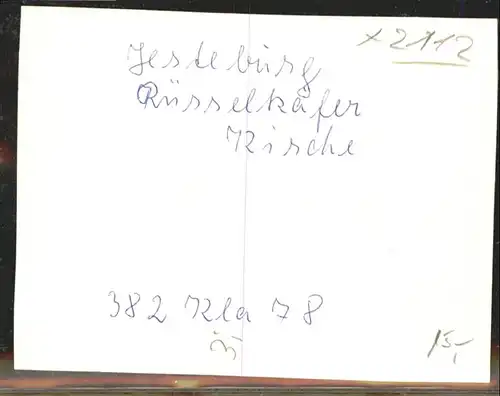 x 2112
Jesteburg
Rüsselkäfer
Kirche
382 Kla 78
15,-